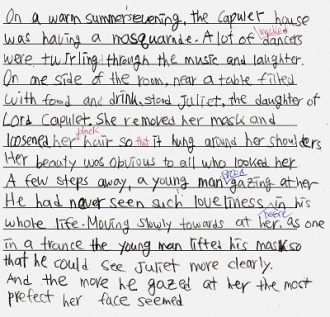 On a warm summer's evening, the Capulet house
was having a masquarade. A lot of masked dancers
were twirling through the music and laughter.
On one side of the room, near a table filled
with food and drink, stood Juliet, the daughter of
Lord Capulet. She removed her mask and
loosened her black hair so that it hung around her shoulders
Her beauty was obvious to all who looked her
A few steps away, a young man gazing at her.
He had never seen such loveliness in his
whole life before. Moving slowly towards at her. as one
in a trance the young man lifted his mask so
that he could see Juliet more clearly.
And the more he gazed at her the most
prefect her face seemed